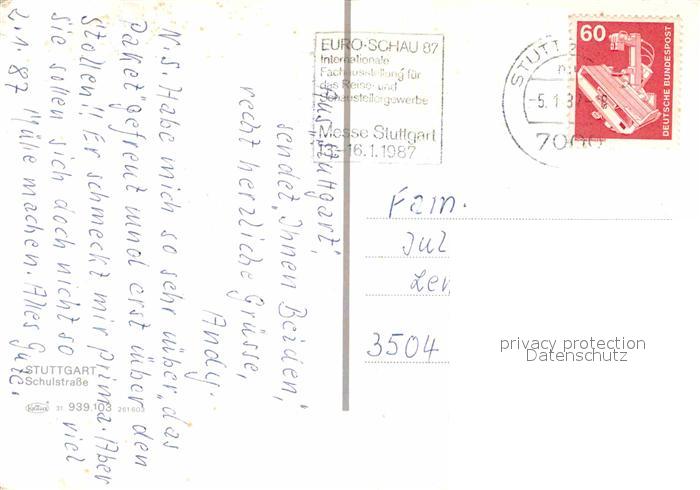 Aus Stuttgart,
sendet „Ihnen Beiden,"
recht herzliche Grüsse,
Andy.
N.S. Habe mich so sehr „über das
Paket" gefreut und erst über den
Stollen!! Er schmeckt mir prima. Aber
sie sollen sich doch nicht so viel
Mülle machen. Alles Gute.
2.1.87
STUTTGART
Schulstraße
31 939.103 261603
EURO-SCHAU 87
Internationale
Fachausstellung für
das Reise- und
Schaustellergewerbe
Messe Stuttgart
13.-16.1.1987
STUTT
-5.1.87-8
7000
60
DEUTSCHE BUNDESPOST
Fam.
Jul
3504
privacy protection
Datenschutz